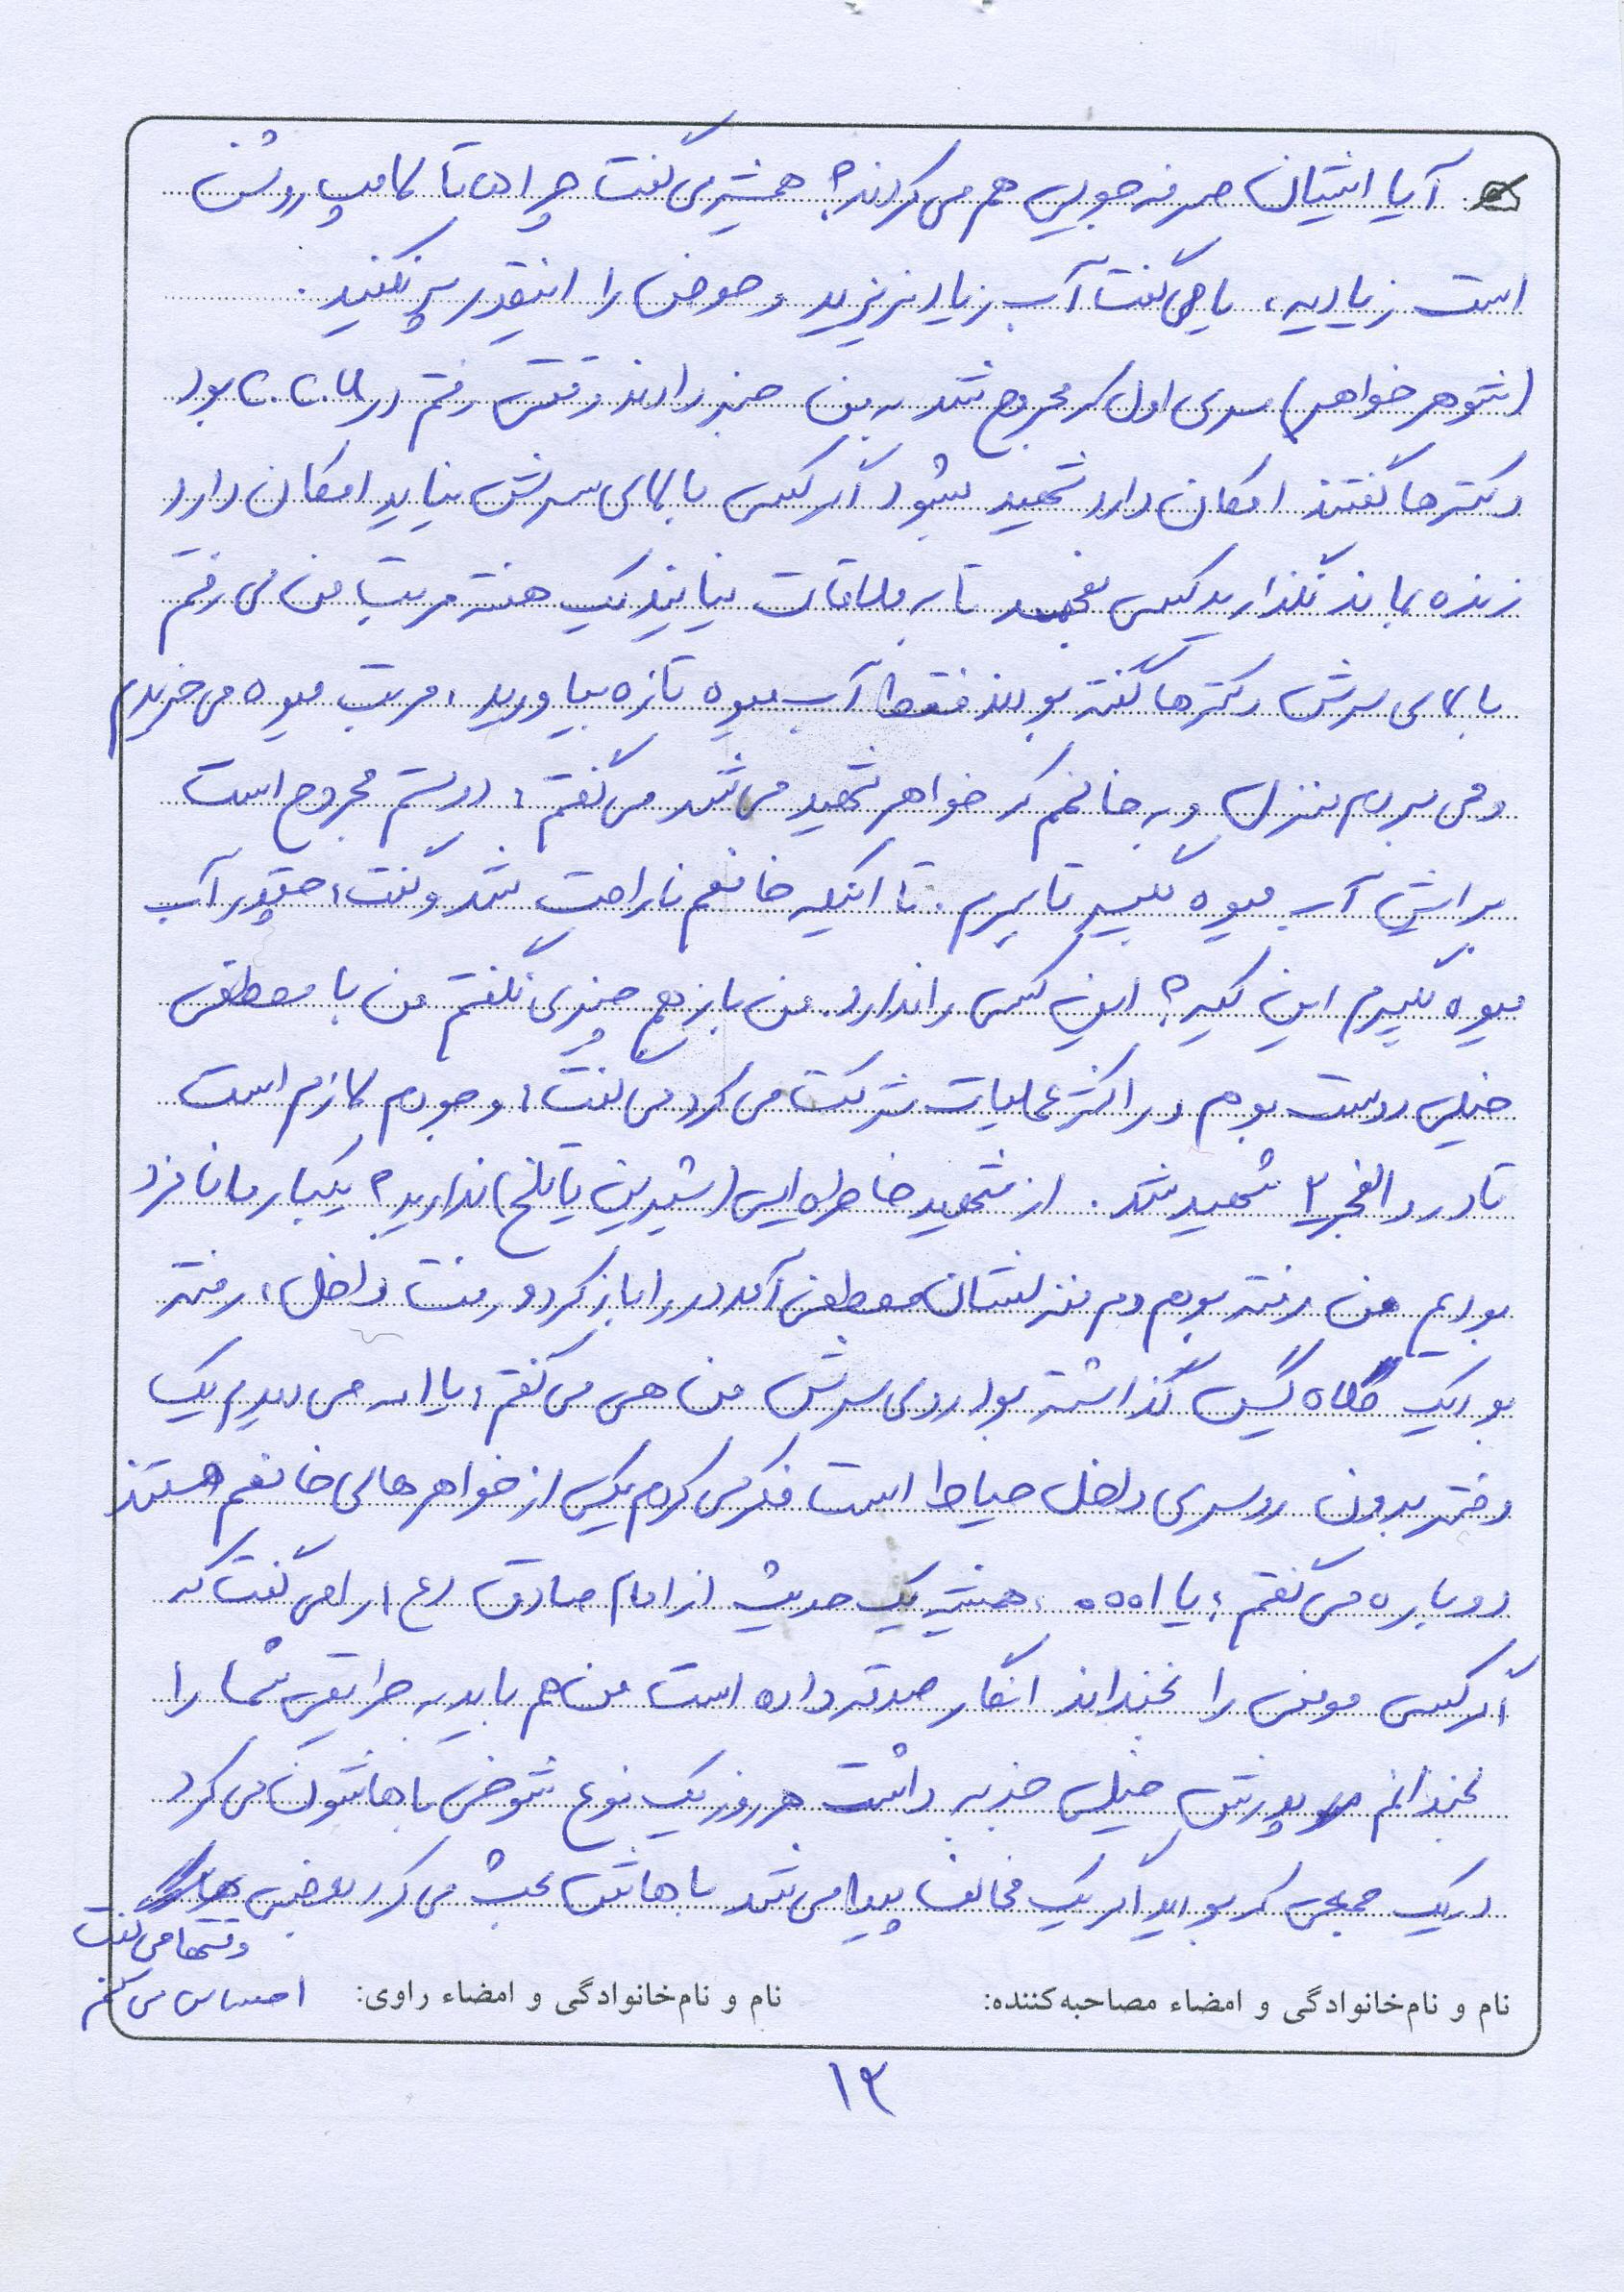 آیا ایشان صرفه جویی هم می کردند؟ همیشه می گفت چرا تا لامپ روشن
است زیادیه، یا می گفت آب زیاد نریزید و حوض را اینقدر پر نکنید.
(شوهر خواهر) سری اول که مجروح شد به من خبر دادند وقتی رفتم در C.C.U بود
دکترها گفتند امکان دارد شهید بشود اگر کسی بالای سرش نیاید امکان دارد
زنده بماند نگذارید کسی بفهمد تا به ملاقات نیایند یک هفته مرتب من می رفتم
بالای سرش دکترها گفته بودند فقط آب میوه تازه بیاورید، مرتب میوه می خریدم
و می بردم منزل و به خانمم که خواهر شهید می شد می گفتم: دوستم مجروح است
برایش آب میوه بگیر تا ببرم. تا اینکه خانمم ناراحت شد و گفت: چقدر آب
میوه بگیرم این کیه؟ این کسی را ندارد. من باز هم چیزی نگفتم من با مصطفی
خیلی دوست بودم در اکثر عملیات شرکت می کرد می گفت: وجودم لازم است
تا در والفجر ۳ شهید شد. از شهید خاطره ایی (شیرین یا تلخ) ندارید؟ یکبار ما نامزد
بودیم من رفته بودم دم منزلشان مصطفی آمد در را باز کرد و رفت داخل، رفته
بود یک کلاه گیس گذاشته بود روی سرش من هی می گفتم: یا ا... می دیدم یک
دختر بدون روسری داخل حیاط است فکر می کردم یکی از خواهرهای خانمم هستند
دوباره می گفتم: یا ا... همیشه یک حدیث از امام صادق (ع) را می گفت که
اگر کسی مومنی را بخنداند انگار صدقه داده است من هم باید به طریقی شما را
بخندانم برخوردش خیلی جذبه داشت هر روز یک نوع شوخی باهاشون می کرد
در یک جمعی که بودید اگر یک مخالف پیدا می شد باهاش بحث می کرد بعضی
وقتها می گفت
احساس می کنم
نام و نام‌خانوادگی و امضاء مصاحبه‌کننده: نام و نام‌خانوادگی و امضاء راوی:
۱۳